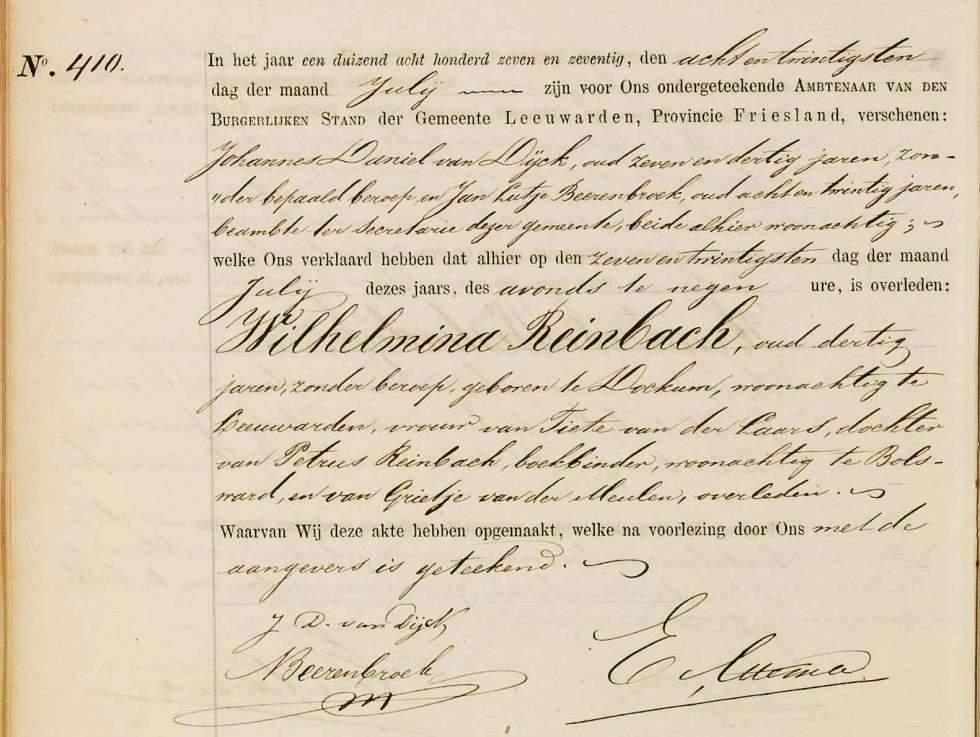 No. 410.
In het jaar een duizend acht honderd zeven en zeventig, den acht en twintigsten
dag der maand Julij zijn voor Ons ondergeteekende AMBTENAAR VAN DEN
BURGERLIJKEN STAND der Gemeente Leeuwarden, Provincie Friesland, verschenen:
Johannes Daniel van Dÿck, oud zeven en dertig jaren, zon-
"der bepaald beroep, en Jan Lutje Beerenbroek, oud acht en twintig jaren,
beambte ter Secretarie dezer gemeente, beide alhier woonachtig;
welke Ons verklaard hebben dat alhier op den zeven en twintigsten dag der maand
Julij dezes jaars, des avonds te negen ure, is overleden:
Wilhelmina Reinbach, oud dertig
jaren, zonder beroep, geboren te Dockum, woonachtig te
Leeuwarden, vrouw van Tiete van der Laars, dochter
van Petrus Reinbach, boekbinder, woonachtig te Bols-
ward, en van Grietje van der Meulen, overleden.
Waarvan Wij deze akte hebben opgemaakt, welke na voorlezing door Ons met de
aangevers is geteekend.
J D. van Dijck
Beerenbroek
E Attema